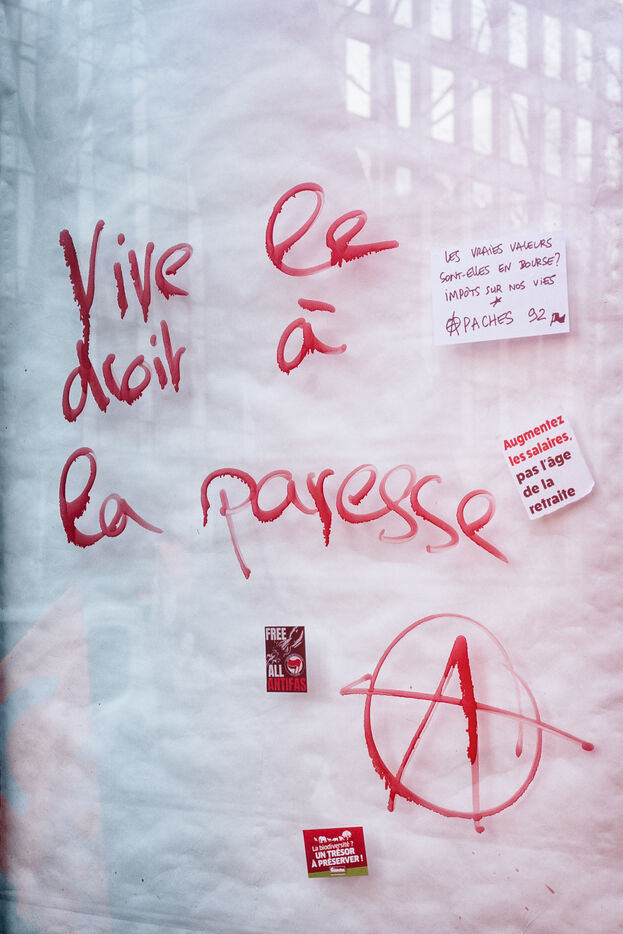 Vive le
droit à
la paresse
LES VRAIES VALEURS
SONT-ELLES EN BOURSE?
IMPÔTS SUR NOS VIES
*
APACHES 92
Augmentez
les salaires,
pas l'âge
de la
retraite
FREE
ALL
ANTIFAS
A
La biodiversité ?
UN TRÉSOR
À PRÉSERVER !